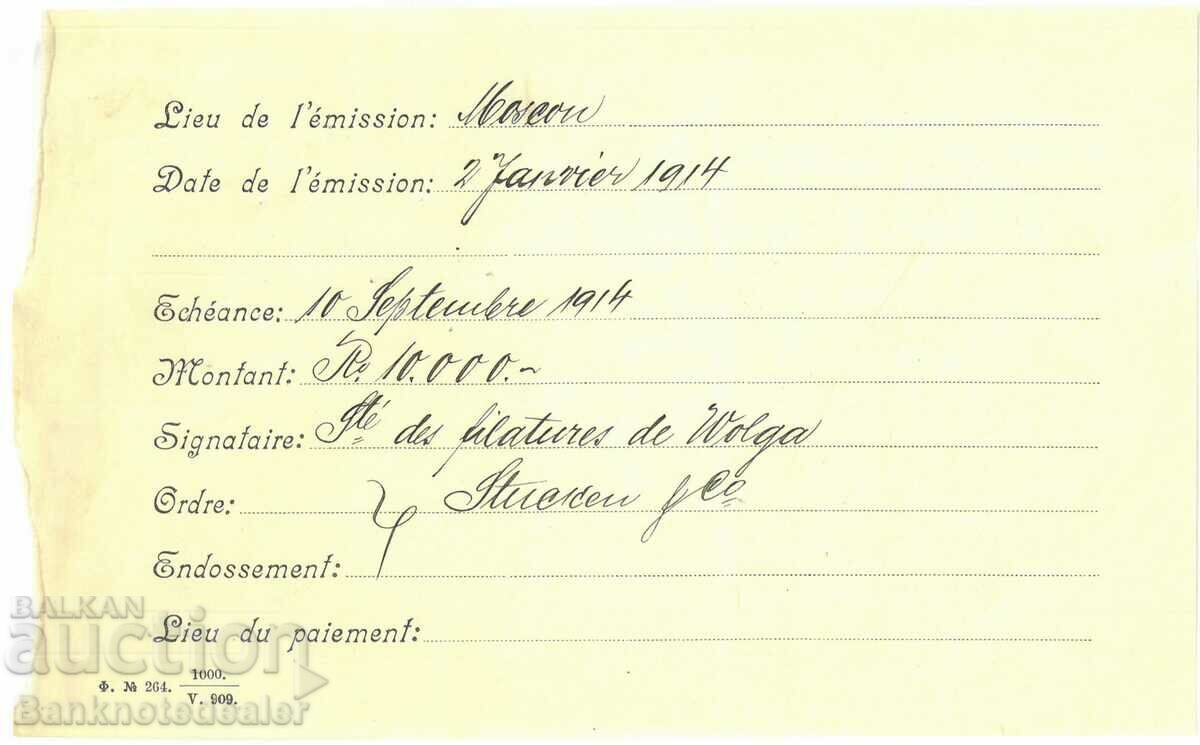 Lieu de l'émission: Moscou
Date de l'émission: 2 Janvier 1914
Echéance: 10 Septembre 1914
Montant: Ro. 10.000.-
Signataire: Sté des filatures de Wolga
Ordre: Stucken & Co
Endossement:
Lieu du paiement:
Ф. № 264. 1000.
V. 909.
BALKAN
auction
Banknotedealer